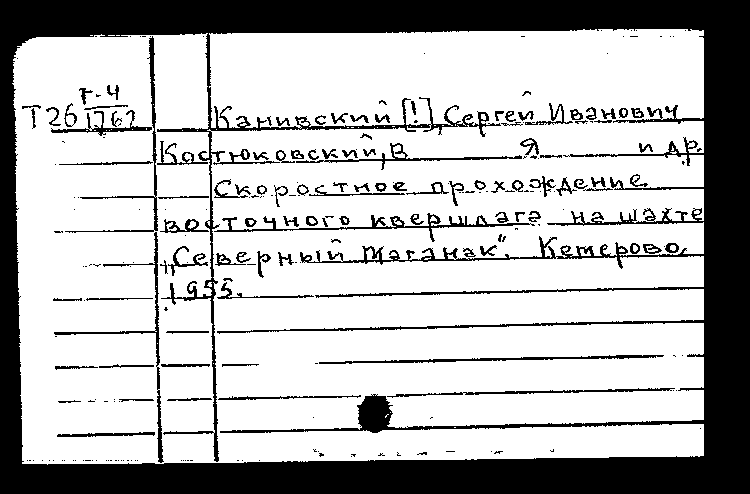 Г-4
Т26 1762
Канивский [!], Сергей Иванович
Костюковский, В Я и др.
Скоростное прохождение
восточного квершлага на шахте
„Северный Маганак". Кемерово,
1955.